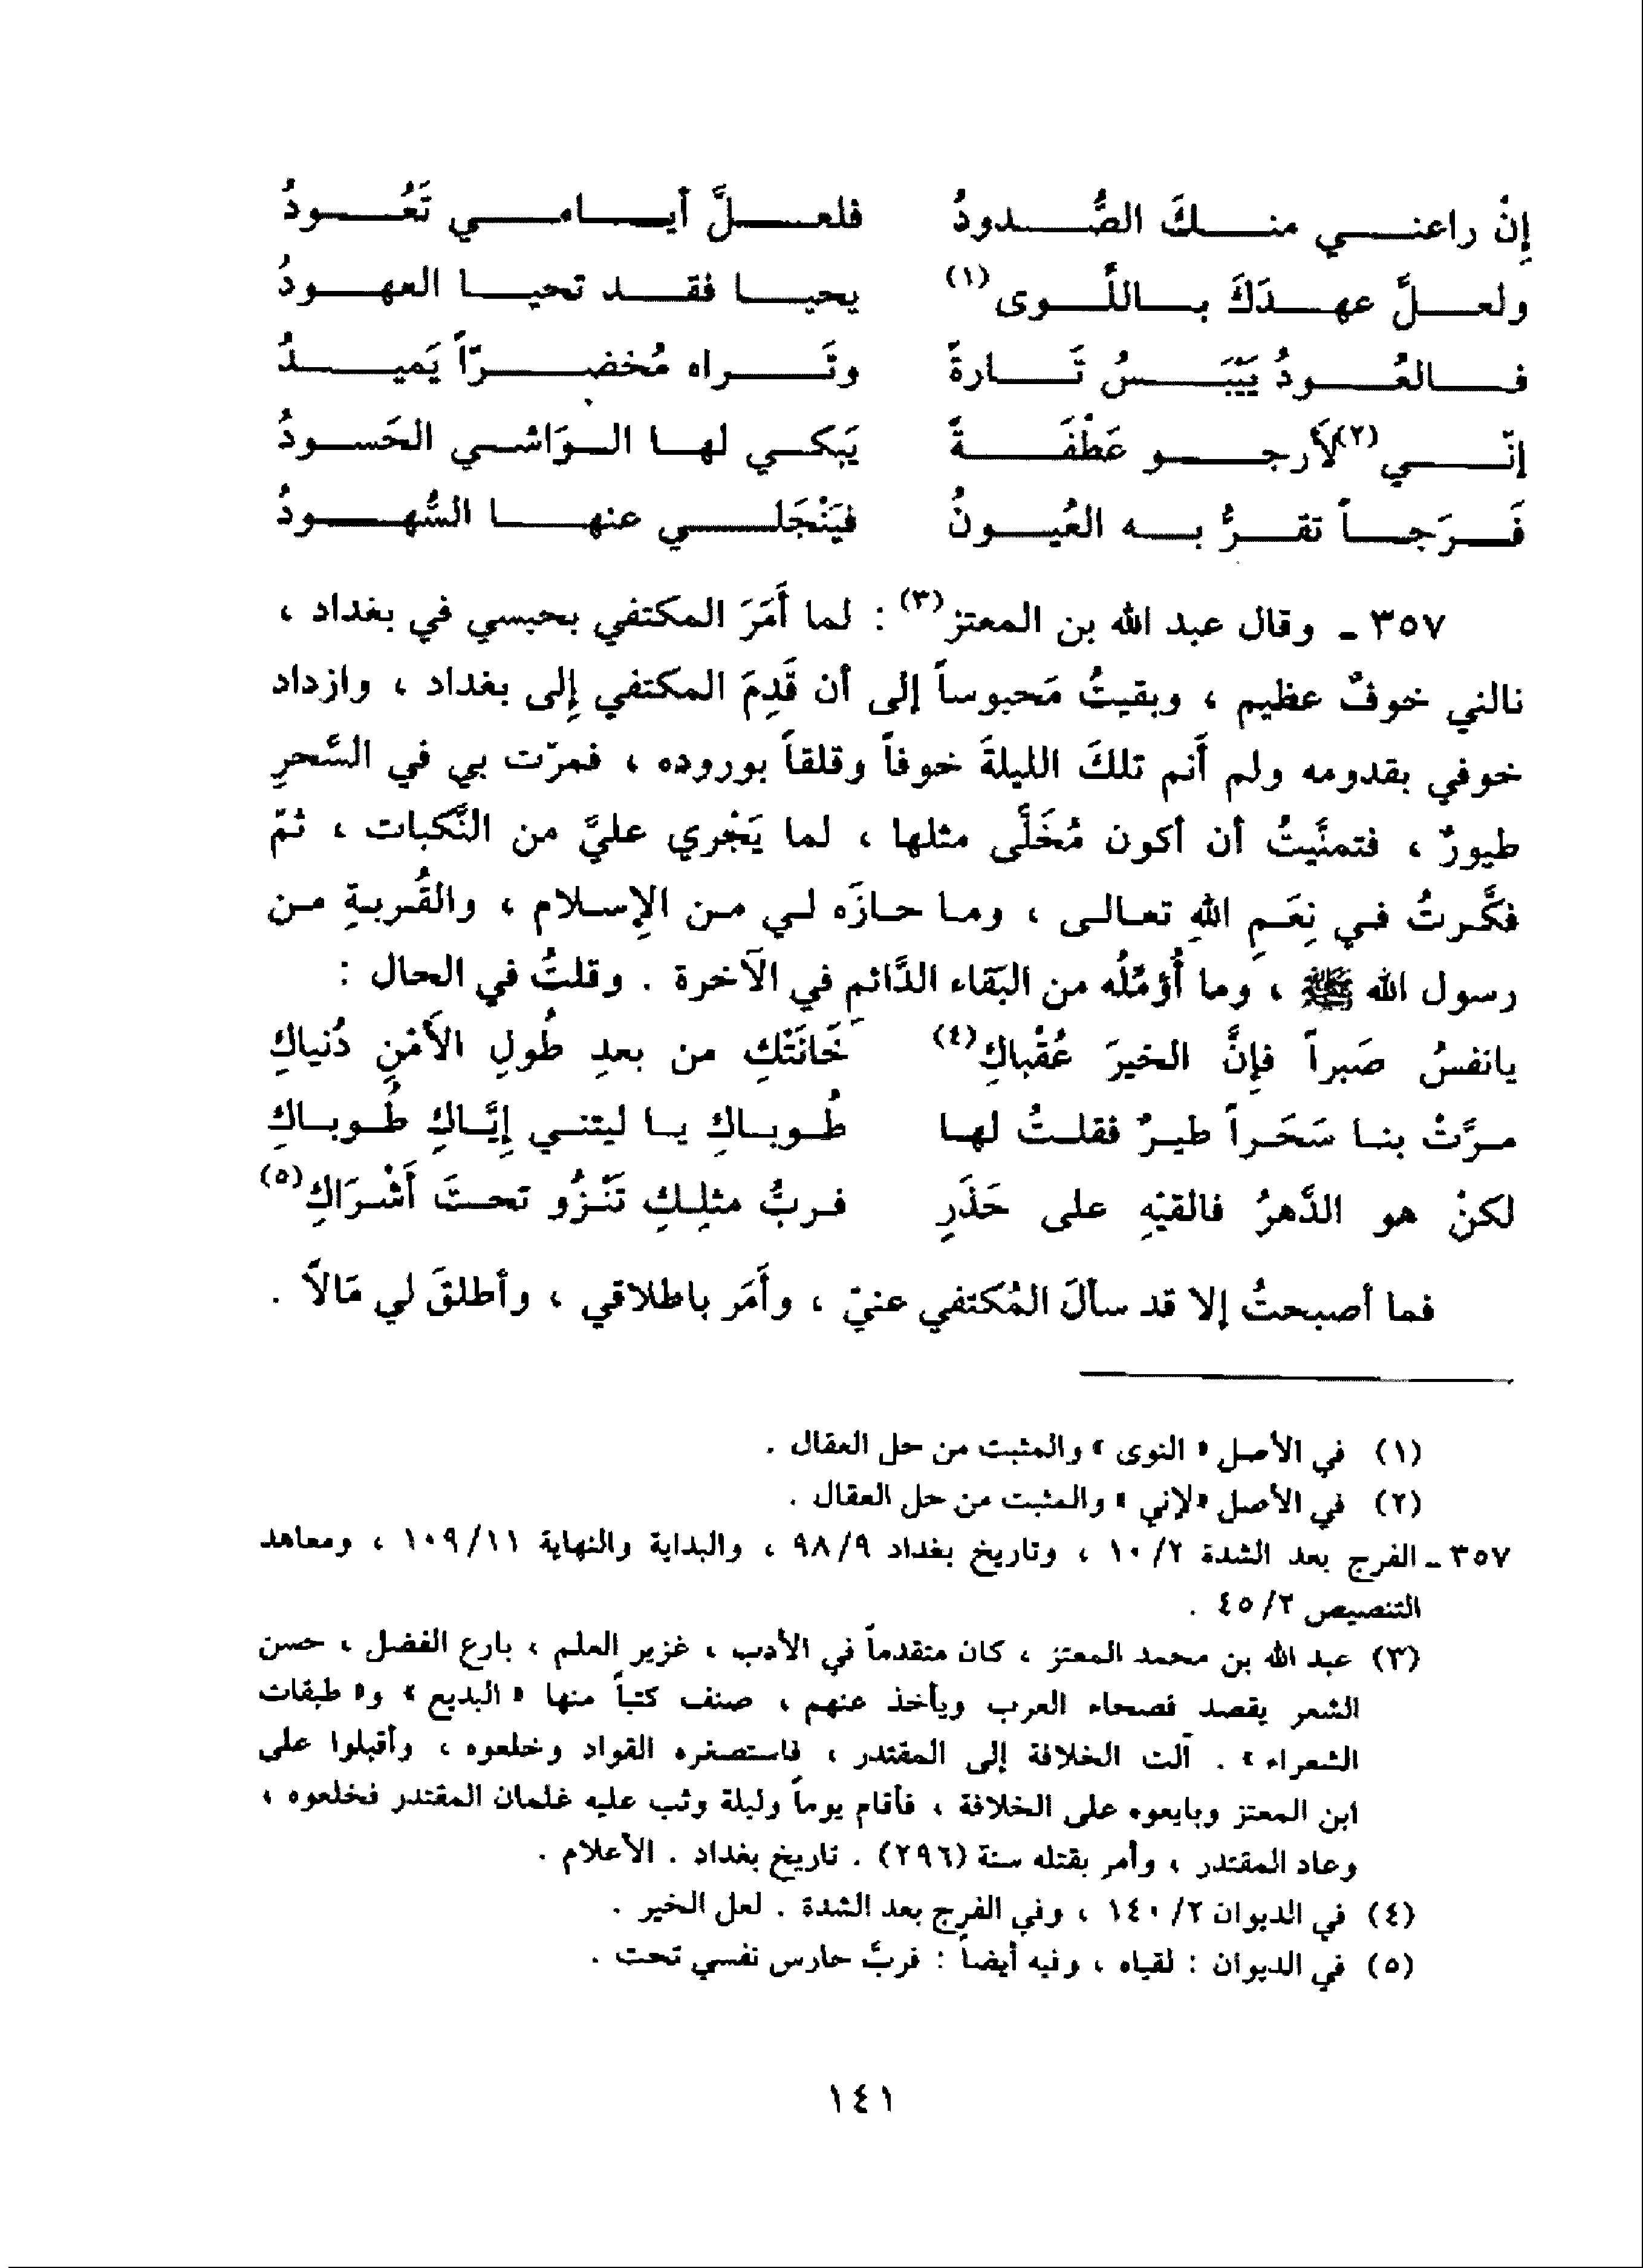 إنْ راعني منكَ الصُّدودُ فلعلَّ أيامي تَعُودُ
ولعلَّ عهدَكَ باللِّوى(١) يحيا فقد تحيا العهودُ
فالعُودُ يَيْبَسُ تَارةً وتَراه مُخضرّاً يَميدُ
إنّي(٢) لأَرجو عَطْفَةً يَبكي لها الوَاشي الحَسودُ
فَرَجاً تقرُّ به العُيونُ فيَنْجَلي عنها السُّهودُ
٣٥٧ ـ وقال عبد الله بن المعتز(٣) : لما أَمَرَ المكتفي بحبسي في بغداد ،
نالني خوفٌ عظيم ، وبقيتُ مَحبوساً إلى أن قَدِمَ المكتفي إِلى بغداد ، وازداد
خوفي بقدومه ولم أَنم تلكَ الليلةَ خوفاً وقلقاً بوروده ، فمرّت بي في السَّحرِ
طيورٌ ، فتمنَّيتُ أن أكون مُخَلًّى مثلها ، لما يَجْري عليَّ من النَّكبات ، ثمّ
فكَّرتُ في نِعَمِ اللهِ تعالى ، وما حازَه لي من الإِسلام ، والقُربةِ من
رسول الله ﷺ ، وما أُؤمِّلُه من البَقاء الدَّائمِ في الآخرة . وقلتُ في الحال :
يانفسُ صَبراً فإِنَّ الخيرَ عُقْباكِ(٤) خَانَتْكِ من بعدِ طُولِ الأَمْنِ دُنياكِ
مرَّتْ بنا سَحَراً طيرٌ فقلتُ لها طُوباكِ يا ليتني إِيَّاكِ طُوباكِ
لكنْ هو الدَّهرُ فالقيْهِ على حَذَرِ فربُّ مثلِكِ تَنْزُو تحتَ أَشْرَاكِ(٥)
فما أصبحتُ إلا قد سألَ المُكتفي عنيّ ، وأَمَر باطلاقي ، وأطلقَ لي مَالاً .
(١) في الأصل « النوى » والمثبت من حل العقال .
(٢) في الأصل «لإني » والمثبت من حل العقال .
٣٥٧ ـ الفرج بعد الشدة ١٠/٢ ، وتاريخ بغداد ٩٨/٩ ، والبداية والنهاية ١٠٩/١١ ، ومعاهد
التنصيص ٤٥/٢ .
(٣) عبد الله بن محمد المعتز ، كان متقدماً في الأدب ، غزير العلم ، بارع الفضل ، حسن
الشعر يقصد فصحاء العرب ويأخذ عنهم ، صنف كتباً منها « البديع » و« طبقات
الشعراء » . آلت الخلافة إلى المقتدر ، فاستصغره القواد وخلعوه ، وأقبلوا على
ابن المعتز وبايعوه على الخلافة ، فأقام يوماً وليلة وثب عليه غلمان المقتدر فخلعوه ،
وعاد المقتدر ، وأمر بقتله سنة (٢٩٦) . تاريخ بغداد . الأعلام .
(٤) في الديوان ١٤٠/٢ ، وفي الفرج بعد الشدة . لعل الخير .
(٥) في الديوان : لقياه ، وفيه أيضاً : فربَّ حارس نفسي تحت .
١٤١